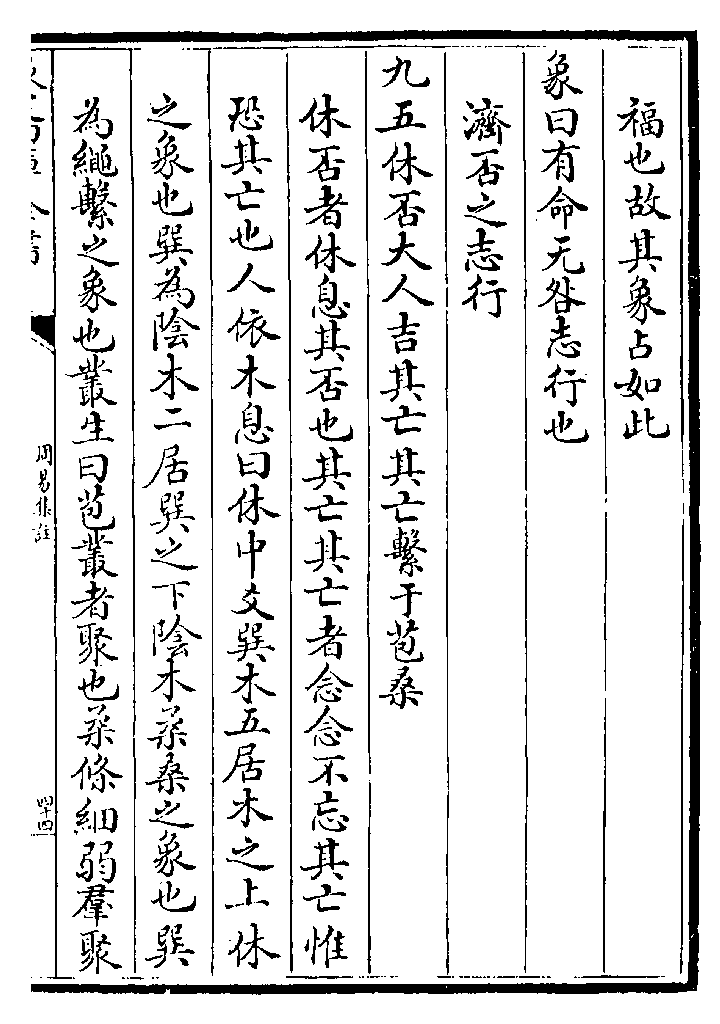 福也故其象占如此
象曰有命无咎志行也
濟否之志行
九五休否大人吉其亡其亡繫于苞桑
休否者休息其否也其亡其亡者念念不忘其亡惟
恐其亡也人依木息曰休中爻巽木五居木之上休
之象也巽為陰木二居巽之下陰木柔桑之象也巽
為繩繫之象也叢生曰苞叢者聚也柔條細弱羣聚
周易集註
四十四